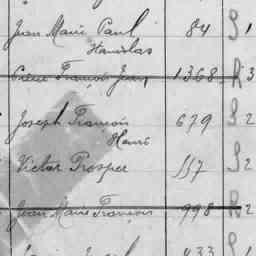 Jean Marie Paul 84 S 1
Stanislas
François Jean 1368 R 3
Joseph François 679 S 2
Henri
Victor Prosper 117 S 2
Jean Marie François 998 R 2
833 S 1